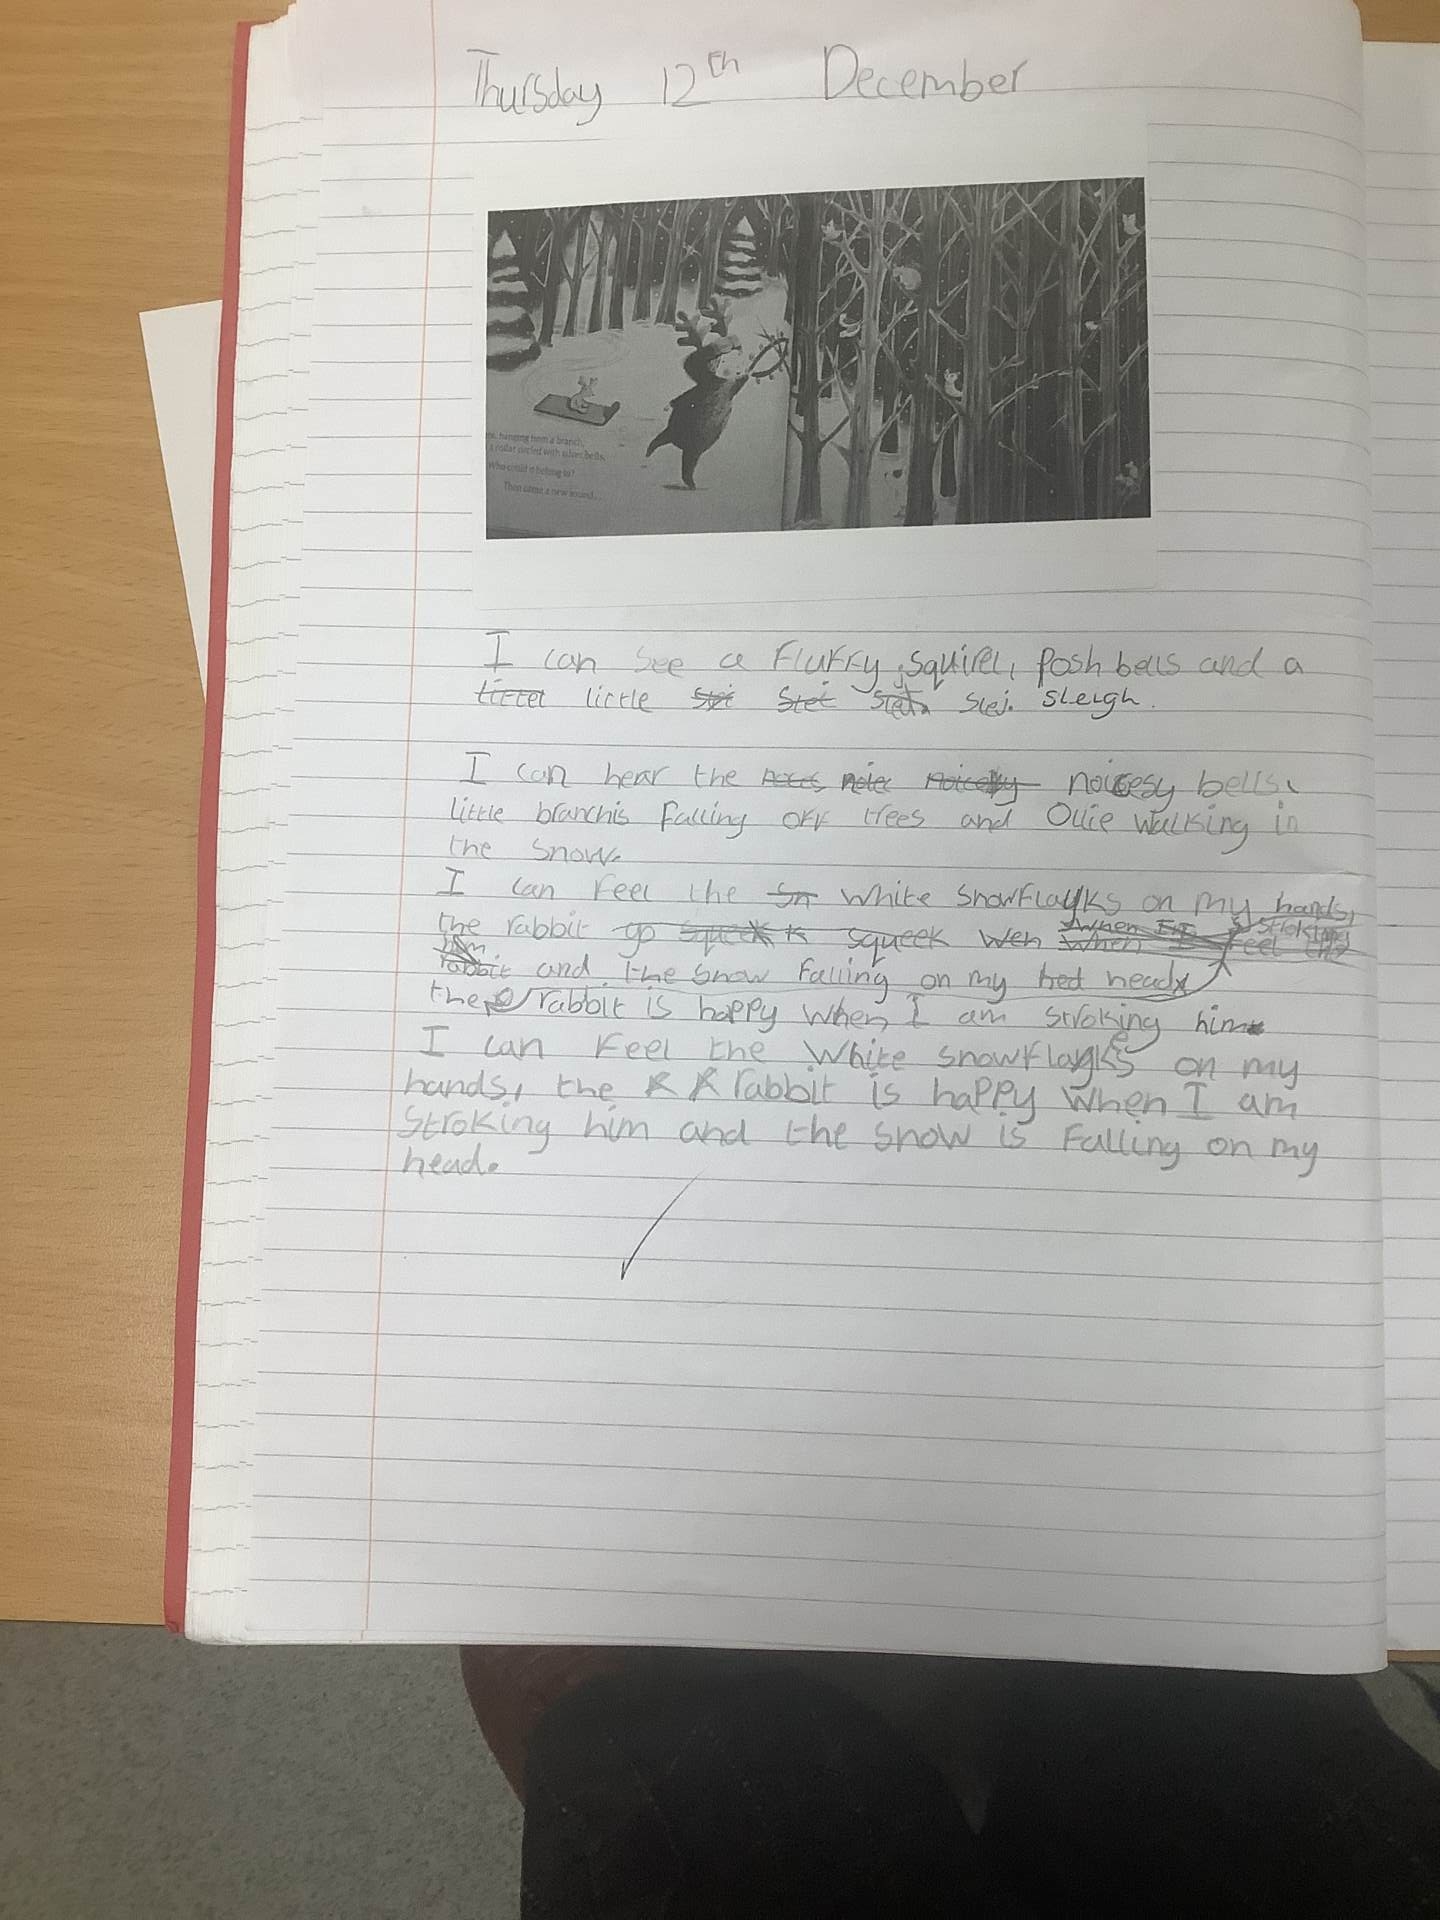 Thursday 12th December
hanging from a branch,
a collar circled with silver bells.
Who could it belong to?
Then came a new sound...
I can see a fluffy squirel, posh bells and a
little slej. sleigh.
I can hear the noisesy bells,
little branchis falling off trees and Ollie walking in
the snow.
I can feel the white snowflayks on my hands,
the rabbit squeek wen
and the snow falling on my hed head
the rabbit is happy when I am stroking him
I can feel the white snowflaykes on my
hands, the rabbit is happy when I am
stroking him and the snow is falling on my
head.